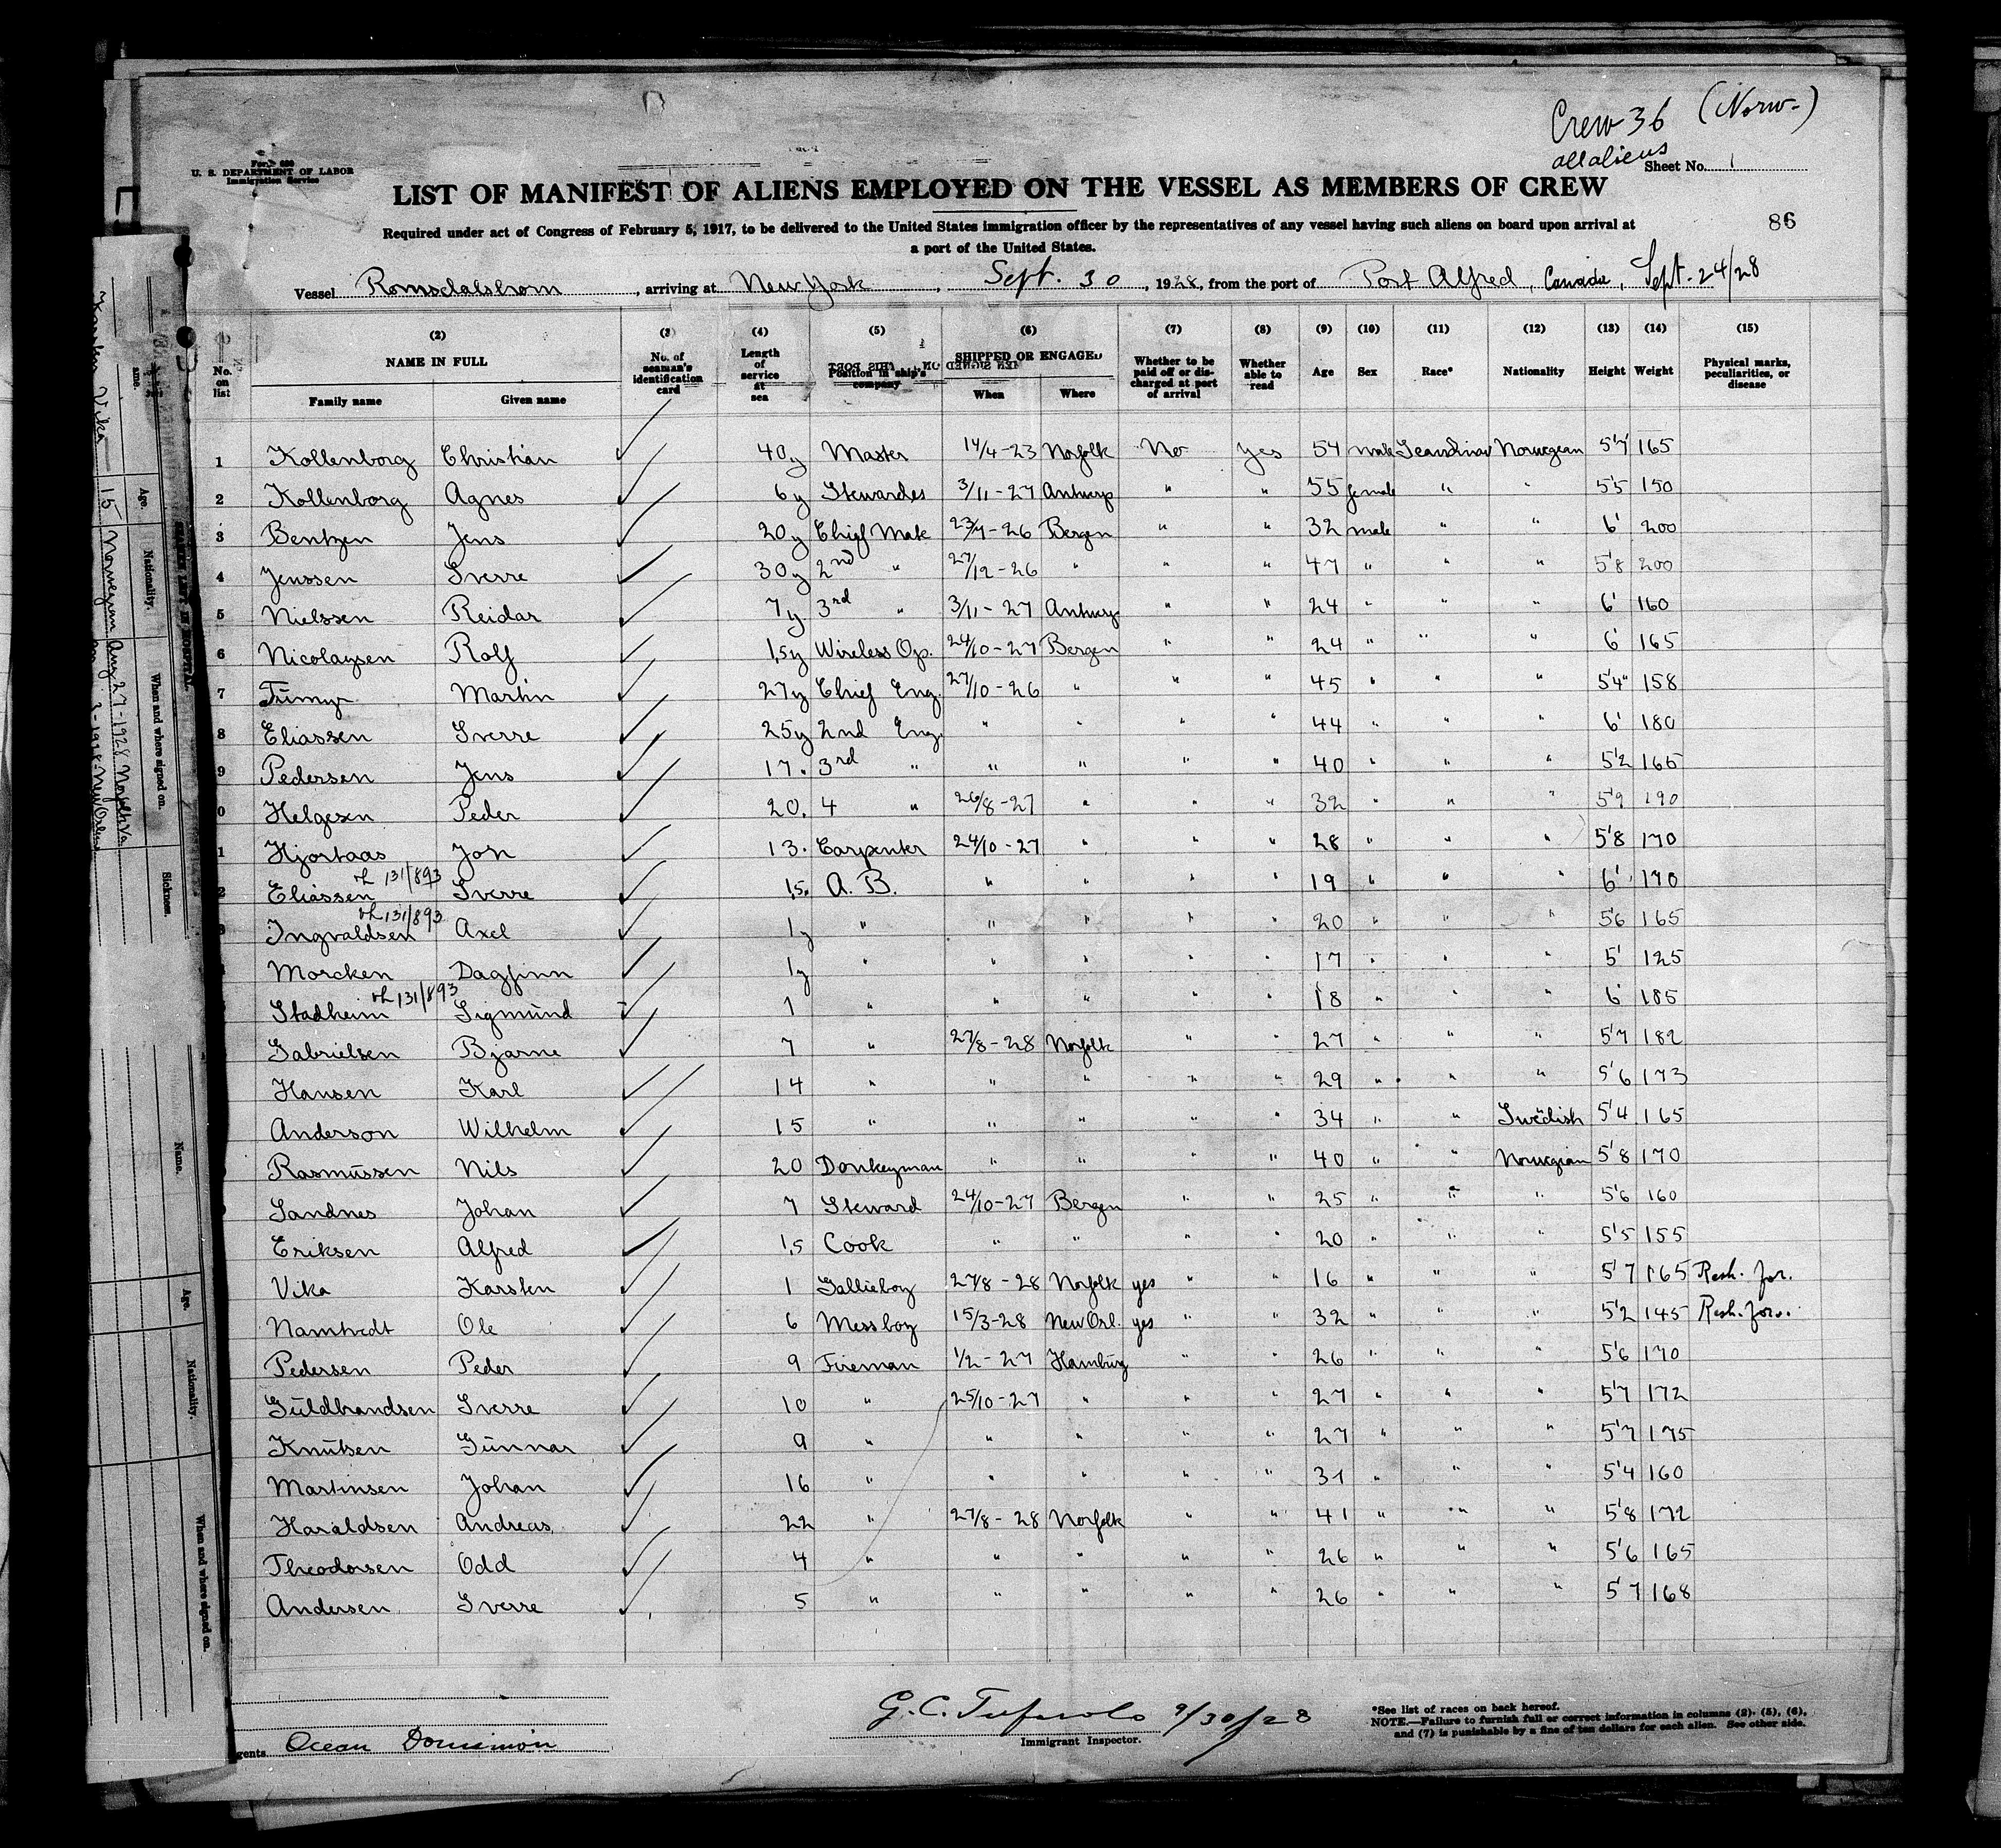 Crew 36 (Norw-)
all aliens
U. S. DEPARTMENT OF LABOR
Immigration Service
Sheet No. 1
LIST OF MANIFEST OF ALIENS EMPLOYED ON THE VESSEL AS MEMBERS OF CREW
86
Required under act of Congress of February 5, 1917, to be delivered to the United States immigration officer by the representatives of any vessel having such aliens on board upon arrival at
a port of the United States.
Vessel Romsdalshorn, arriving at New York, Sept. 30, 1928, from the port of Port Alfred, Canada, Sept. 24/28
(2) (3) (4) (5) (6) (7) (8) (9) (10) (11) (12) (13) (14) (15)
No. on list NAME IN FULL Family name Given name No. of seaman's identification card Length of service at sea Position in ship's company SHIPPED OR ENGAGED When Where Whether to be paid off or discharged at port of arrival Whether able to read Age Sex Race* Nationality Height Weight Physical marks, peculiarities, or disease
1 Kollenborg Christian 40y Master 14/4-23 Norfolk No yes 54 male Scandinav Norwegian 5'7 165
2 Kollenborg Agnes 6y Stewardes 3/11-27 Antwerp " " 55 female " " 5'5 150
3 Bentzen Jens 20y Chief Mate 23/7-26 Bergen " " 32 male " " 6' 200
4 Jenssen Sverre 30y 2nd " 27/12-26 " " " 47 " " " 5'8 200
5 Nielssen Reidar 7y 3rd " 3/11-27 Antwerp " " 24 " " " 6' 160
6 Nicolaysen Rolf 1,5y Wireless Op. 24/10-27 Bergen " " 24 " " " 6' 165
7 Martin 27y Chief Eng. 27/10-26 " " " 45 " " " 5'4" 158
8 Eliassen Sverre 25y 2nd Eng. " " " " 44 " " " 6' 180
9 Pedersen Jens 17. 3rd " " " " " 40 " " " 5'2 165
0 Helgesen Peder 20. 4 " 26/8-27 " " " 32 " " " 5'9 190
1 Hjortaas Joh 13. Carpenter 24/10-27 " " " 28 " " " 5'8 170
2 Eliassen 131/893 Sverre 1,5. A. B. " " " " 19 " " " 6' 170
Ingvaldsen 131/893 Axel 1y " " " " " 20 " " " 5'6 165
Morcken Dagfinn 1y " " " " " 17 " " " 5' 125
Stadheim 131/893 Sigmund 1 " " " " " 18 " " " 6' 185
Gabrielsen Bjarne 7 " 27/8-28 Norfolk " " 27 " " " 5'7 182
Hansen Karl 14 " " " " " 29 " " " 5'6 173
Anderson Wilhelm 15 " " " " " 34 " " Swedish 5'4 165
Rasmussen Nils 20 Donkeyman " " " " 40 " " Norwegian 5'8 170
Sandnes Johan 7 Steward 24/10-27 Bergen " " 25 " " " 5'6 160
Eriksen Alfred 1,5 Cook " " " 20 " " " 5'5 155
Vika Karsten 1 Gallieboy 27/8-28 Norfolk yes " " 16 " " " 5'7 165 Resh. for.
Namtvedt Ole 6 Messboy 15/3-28 New Orl. yes " " 32 " " " 5'2 145 Resh. for.
Pedersen Peder 9 Fireman 1/2-27 Hamburg " " 26 " " " 5'6 170
Guldbrandsen Sverre 10 " 25/10-27 " " " 27 " " " 5'7 172
Knutsen Gunnar 9 " " " " " 27 " " " 5'7 175
Martinsen Johan 16 " " " " " 31 " " " 5'4 160
Haraldsen Andreas 22 " 27/8-28 Norfolk " " 41 " " " 5'8 172
Theodorsen Odd 4 " " " " " 26 " " " 5'6 165
Andersen Sverre 5 " " " " " 26 " " " 5'7 168
gents Ocean Dominion
9/30/28
Immigrant Inspector.
*See list of races on back hereof.
NOTE.—Failure to furnish full or correct information in columns (2), (5), (6),
and (7) is punishable by a fine of ten dollars for each alien. See other side.
Karsten Vika 15 Norwegian Aug 27-1928 Norfolk Va
Age. Nationality. When and where signed on. Sickness.
Name. Age. Nationality. When and where signed on.